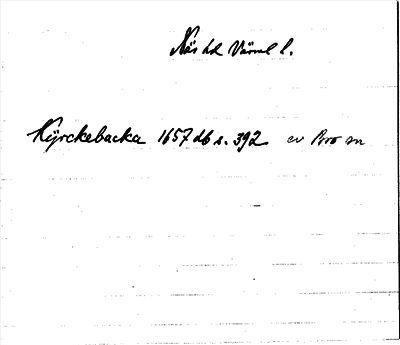 Näs hd Värml l.
Kÿrckebacka 1657 db s. 392 ev Bro sn